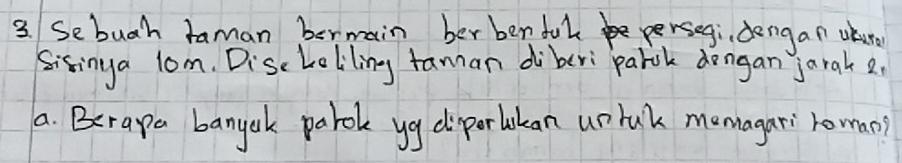 3. Sebuah taman bermain berbentuk persegi, dengan ukuran
sisinya 10m. Disekeliling taman diberi patok dengan jarak 2
a. Berapa banyak patok yg diperlukan untuk memagari taman?